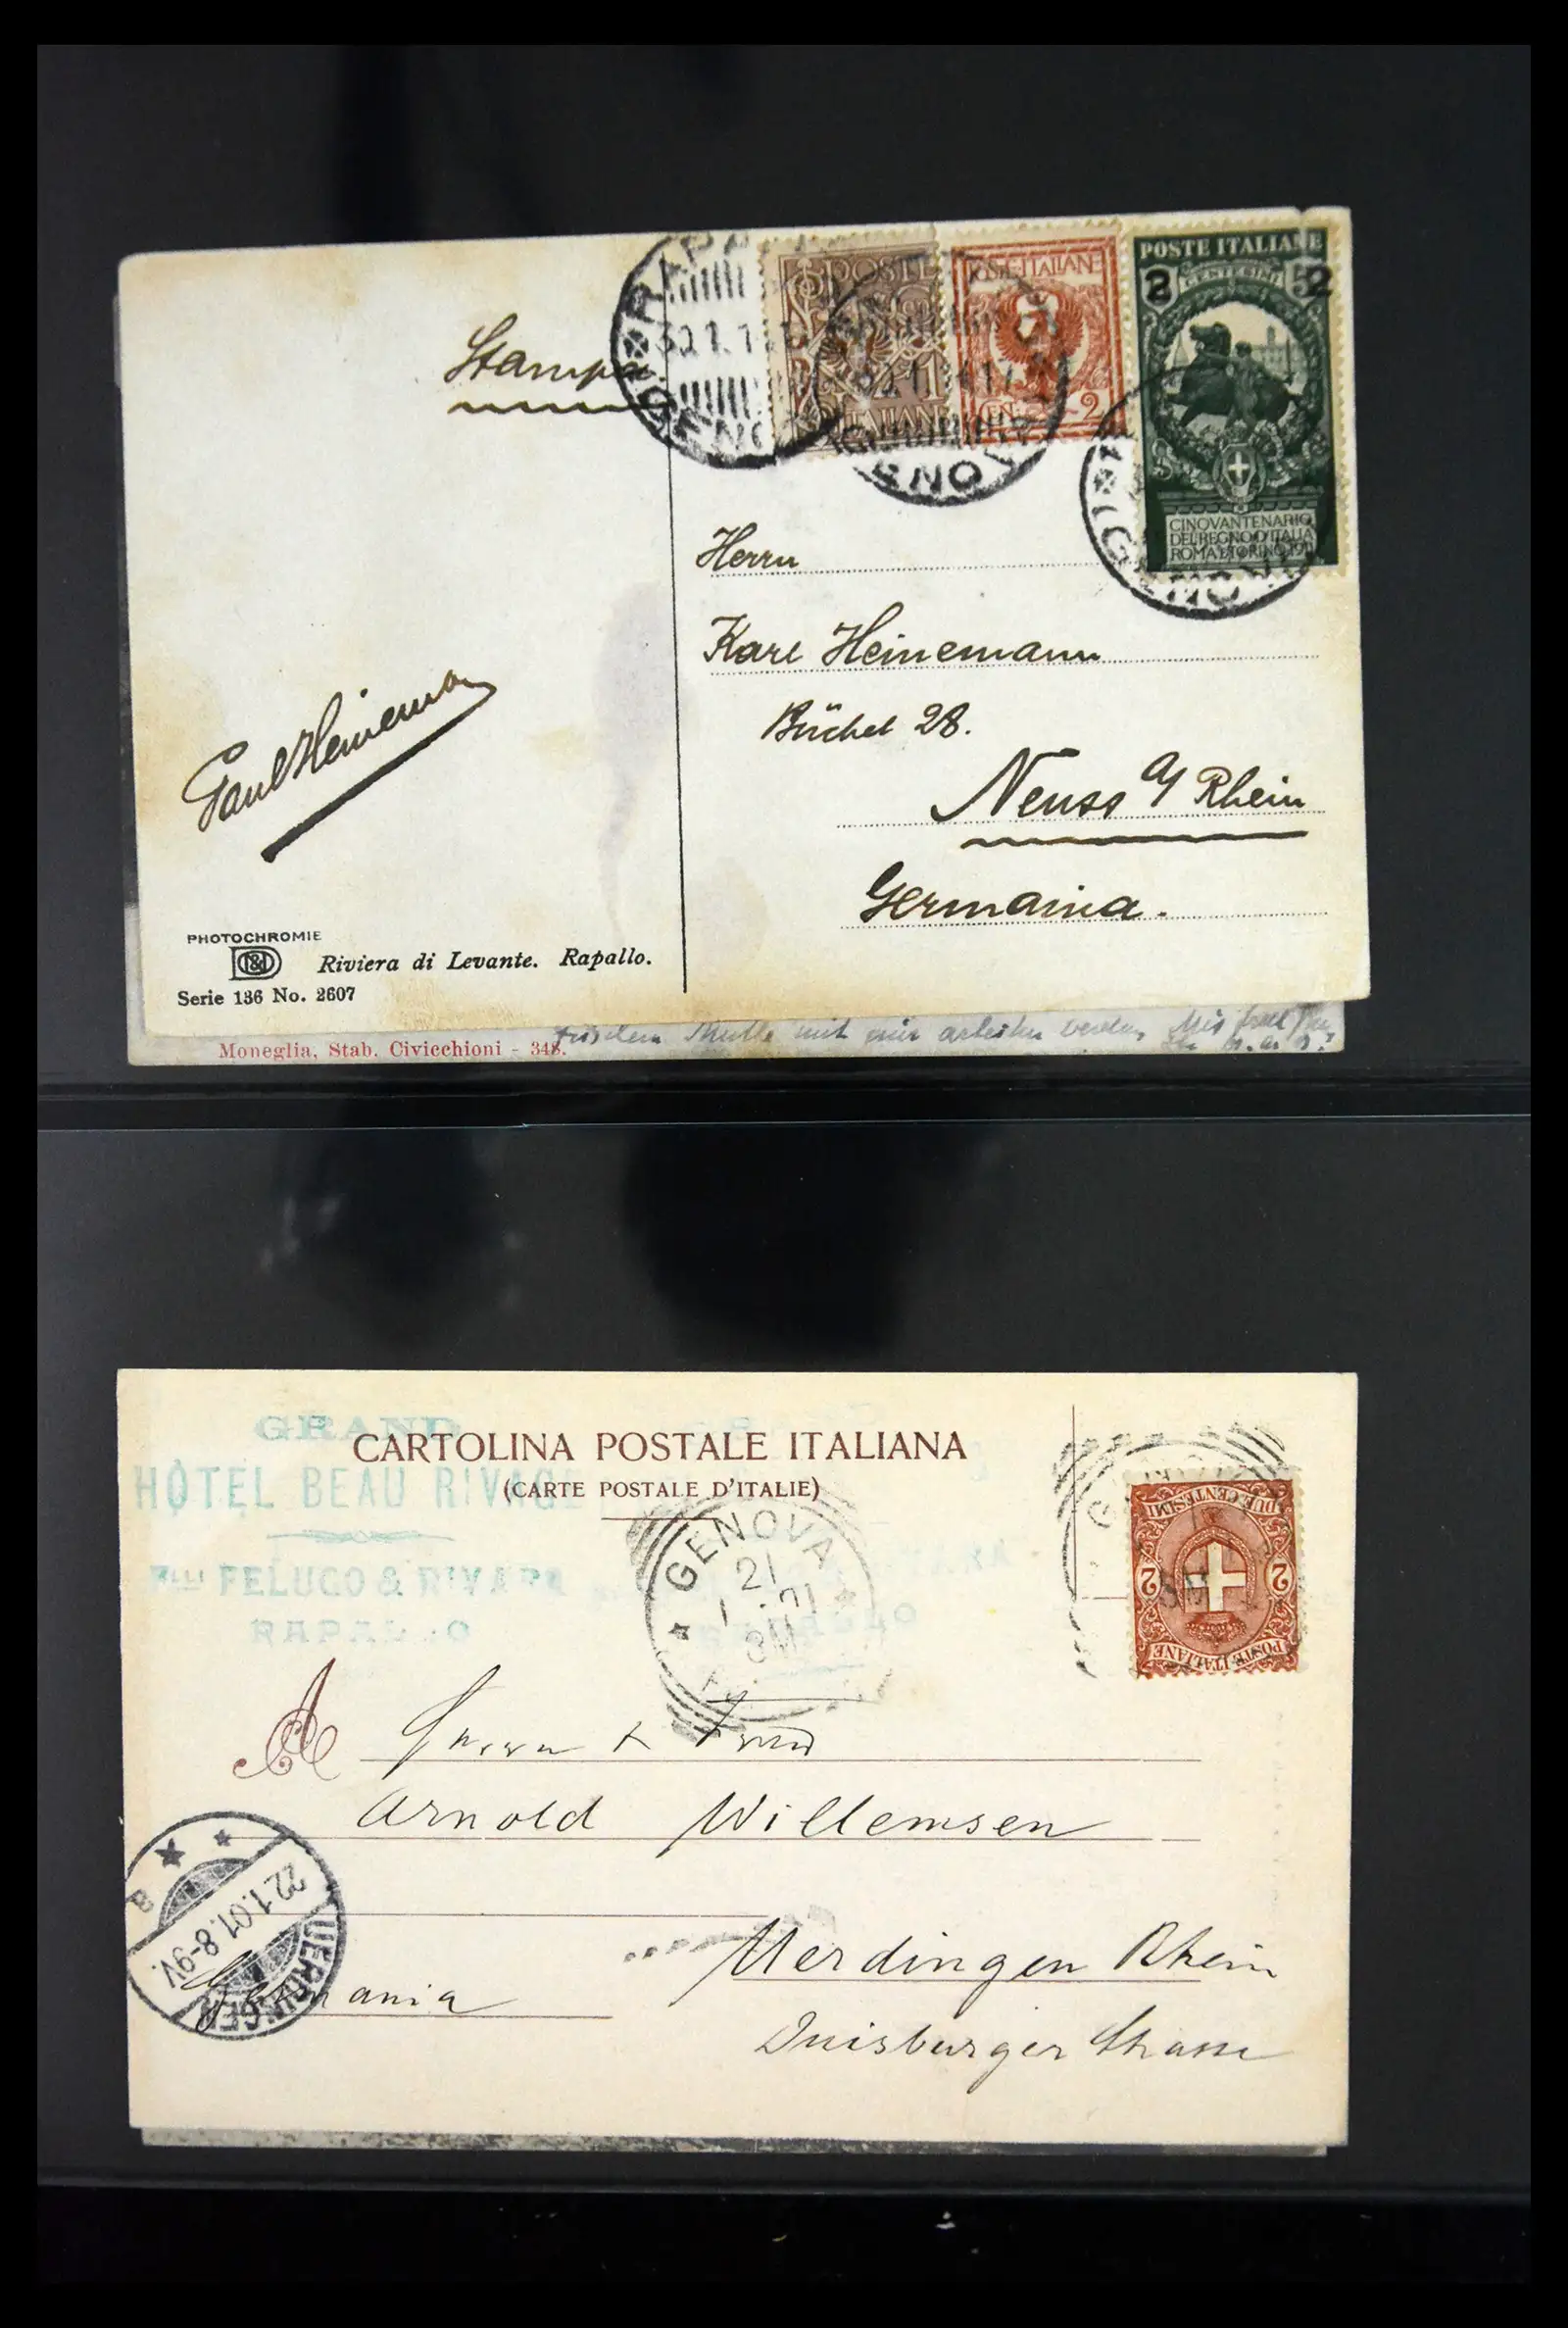 Stampa
POSTE
1
ITALIANE
POSTE ITALIANE
CEN. 2
POSTE ITALIANE
2 CENTESIMI 5 2
CINQVANTENARIO
DEL REGNO D'ITALIA
ROMA E TORINO 1911
Herrn
Karl Heinemann
Büchel 28.
Neuss a/ Rhein
Germania.
Paul Heinemann
PHOTOCHROMIE
Riviera di Levante. Rapallo.
Serie 136 No. 2607
Moneglia, Stab. Civicchioni - 348.
GRAND
HÔTEL BEAU RIVAGE
FLLI FELUGO & RIVARA
RAPALLO
CARTOLINA POSTALE ITALIANA
(CARTE POSTALE D'ITALIE)
GENOVA
21
DUE CENTESIMI
2 2
POSTE ITALIANE
A
Arnold Willemsen
Uerdingen Rhein
Germania
Duisburger Strasse
UERDINGEN
22.1.01.8-9V.
a